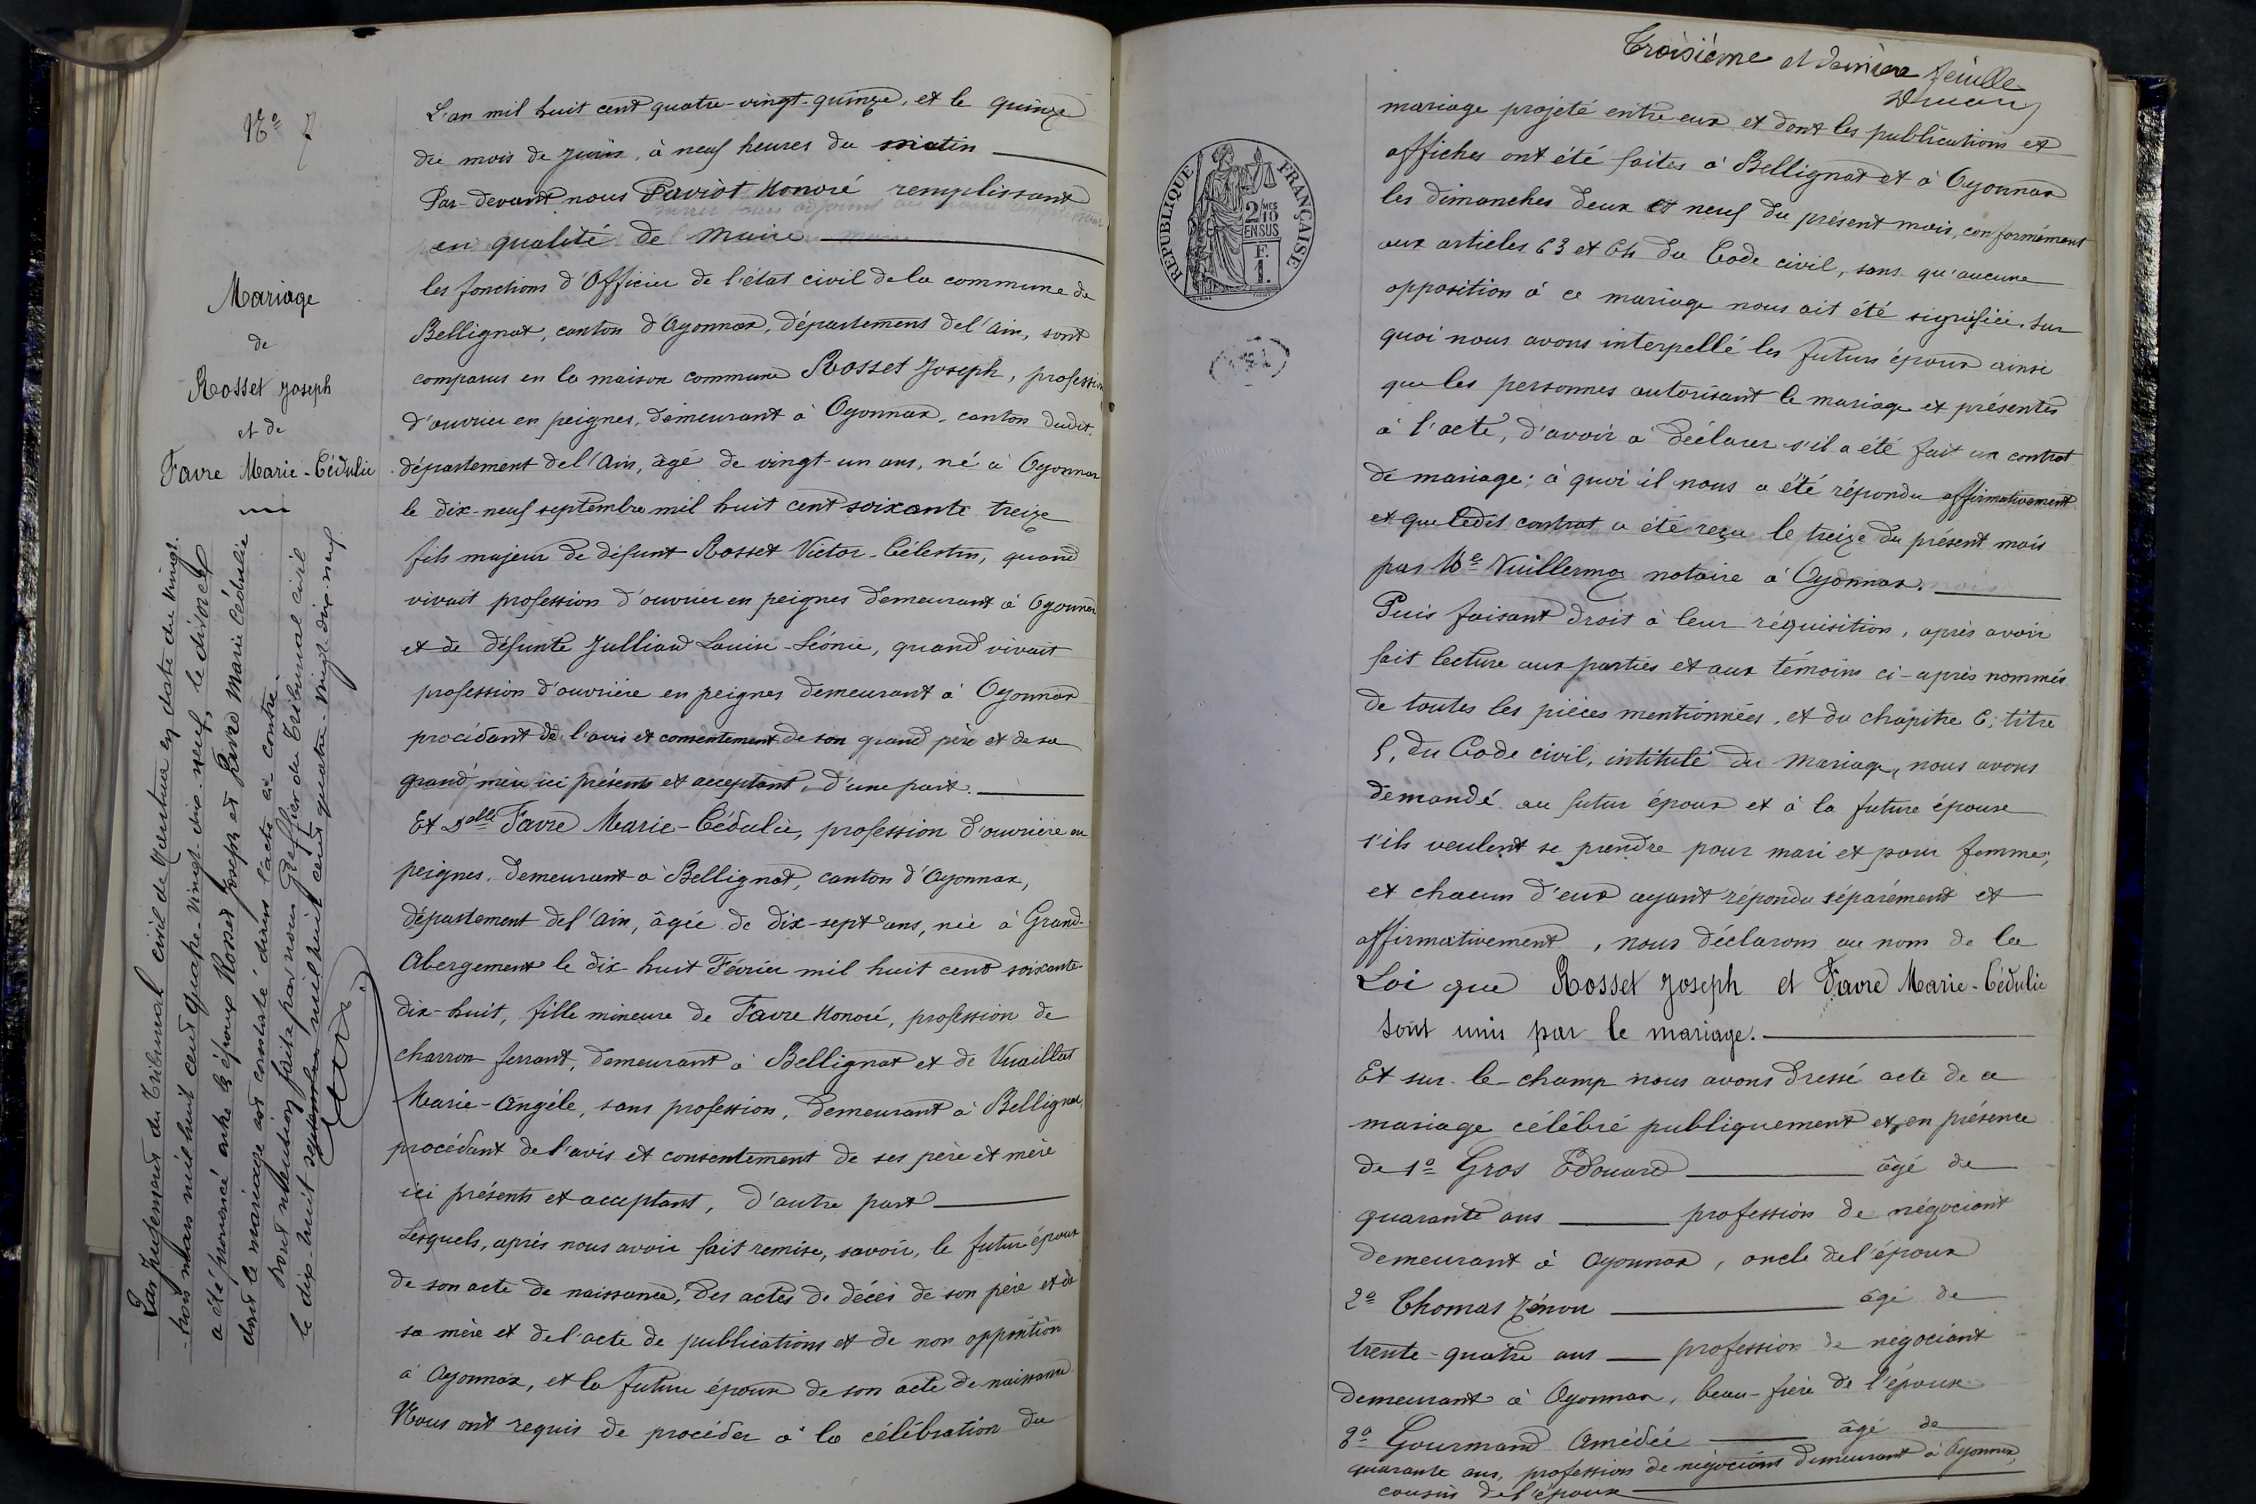 No 7
Mariage
de
Rosset Joseph
et de
Favre Marie-Cédulie
Par jugement du Tribunal civil de Nantua en date du vingt-
-trois mars mil huit cent quatre-vingt-dix-neuf, le divorce
a été prononcé entre les époux Rosset Joseph et Favre Marie Cédulie
dont le mariage est constaté dans l'acte ci-contre.
Dont mention faite par nous Greffier du Tribunal civil
le dix-huit septembre mil huit cent quatre-vingt-dix-neuf
L'an mil huit cent quatre-vingt-quinze, et le quinze
du mois de juin, à neuf heures du matin
Par-devant nous Paviot Honoré remplissant
en qualité de Maire
les fonctions d'Officier de l'état civil de la commune de
Bellignat, canton d'Oyonnax, département de l'Ain, sont
comparus en la maison commune Rosset Joseph, profession
d'ouvrier en peignes, demeurant à Oyonnax, canton dudit,
département de l'Ain, âgé de vingt-un ans, né à Oyonnax
le dix-neuf septembre mil huit cent soixante treize
fils majeur de défunt Rosset Victor-Célestin, quand
vivait profession d'ouvrier en peignes demeurant à Oyonnax
et de défunte Julliard Louise-Léonie, quand vivait
profession d'ouvrière en peignes demeurant à Oyonnax
procédant de l'avis et consentement de son grand père et de sa
grand'mère ici présents et acceptant, d'une part.
Et Delle Favre Marie-Cédulie, profession d'ouvrière en
peignes, demeurant à Bellignat, canton d'Oyonnax,
département de l'Ain, âgée de dix-sept ans, née à Grand-
Abergement le dix-huit Février mil huit cent soixante-
dix-huit, fille mineure de Favre Honoré, profession de
charron ferrant, demeurant à Bellignat et de Vuaillat
Marie-Angèle, sans profession, demeurant à Bellignat,
procédant de l'avis et consentement de ses père et mère
ici présents et acceptant, d'autre part
Lesquels, après nous avoir fait remise, savoir, le futur époux
de son acte de naissance, des actes de décès de son père et de
sa mère et de l'acte de publications et de non opposition
à Oyonnax, et la future épouse de son acte de naissance
Nous ont requis de procéder à la célébration du
Troisième et dernière feuille
RÉPUBLIQUE FRANÇAISE
2 MES
10
EN SUS
F.
1.
mariage projeté entre eux et dont les publications et
affiches ont été faites à Bellignat et à Oyonnax
les dimanches deux et neuf du présent mois, conformément
aux articles 63 et 64 du Code civil, sans qu'aucune
opposition à ce mariage nous ait été signifiée. Sur
quoi nous avons interpellé les futurs époux ainsi
que les personnes autorisant le mariage et présentes
à l'acte, d'avoir à déclarer s'il a été fait un contrat
de mariage; à quoi il nous a été répondu affirmativement
et que ledit contrat a été reçu le treize du présent mois
par Me Vuillermoz notaire à Oyonnax.
Puis faisant droit à leur réquisition, après avoir
fait lecture aux parties et aux témoins ci-après nommés
de toutes les pièces mentionnées, et du chapitre 6, titre
5, du Code civil, intitulé du Mariage, nous avons
demandé au futur époux et à la future épouse
s'ils veulent se prendre pour mari et pour femme;
et chacun d'eux ayant répondu séparément et
affirmativement, nous déclarons au nom de la
Loi que Rosset Joseph et Favre Marie-Cédulie
sont unis par le mariage.
Et sur-le-champ nous avons dressé acte de ce
mariage célébré publiquement et en présence
de 1o Gros Edouard âgé de
quarante ans profession de négociant
demeurant à Oyonnax, oncle de l'époux
2o Thomas Zénon âgé de
trente-quatre ans profession de négociant
demeurant à Oyonnax, beau-frère de l'époux
3o Gourmand Amédée âgé de
quarante ans, profession de négociant demeurant à Oyonnax,
cousin de l'époux